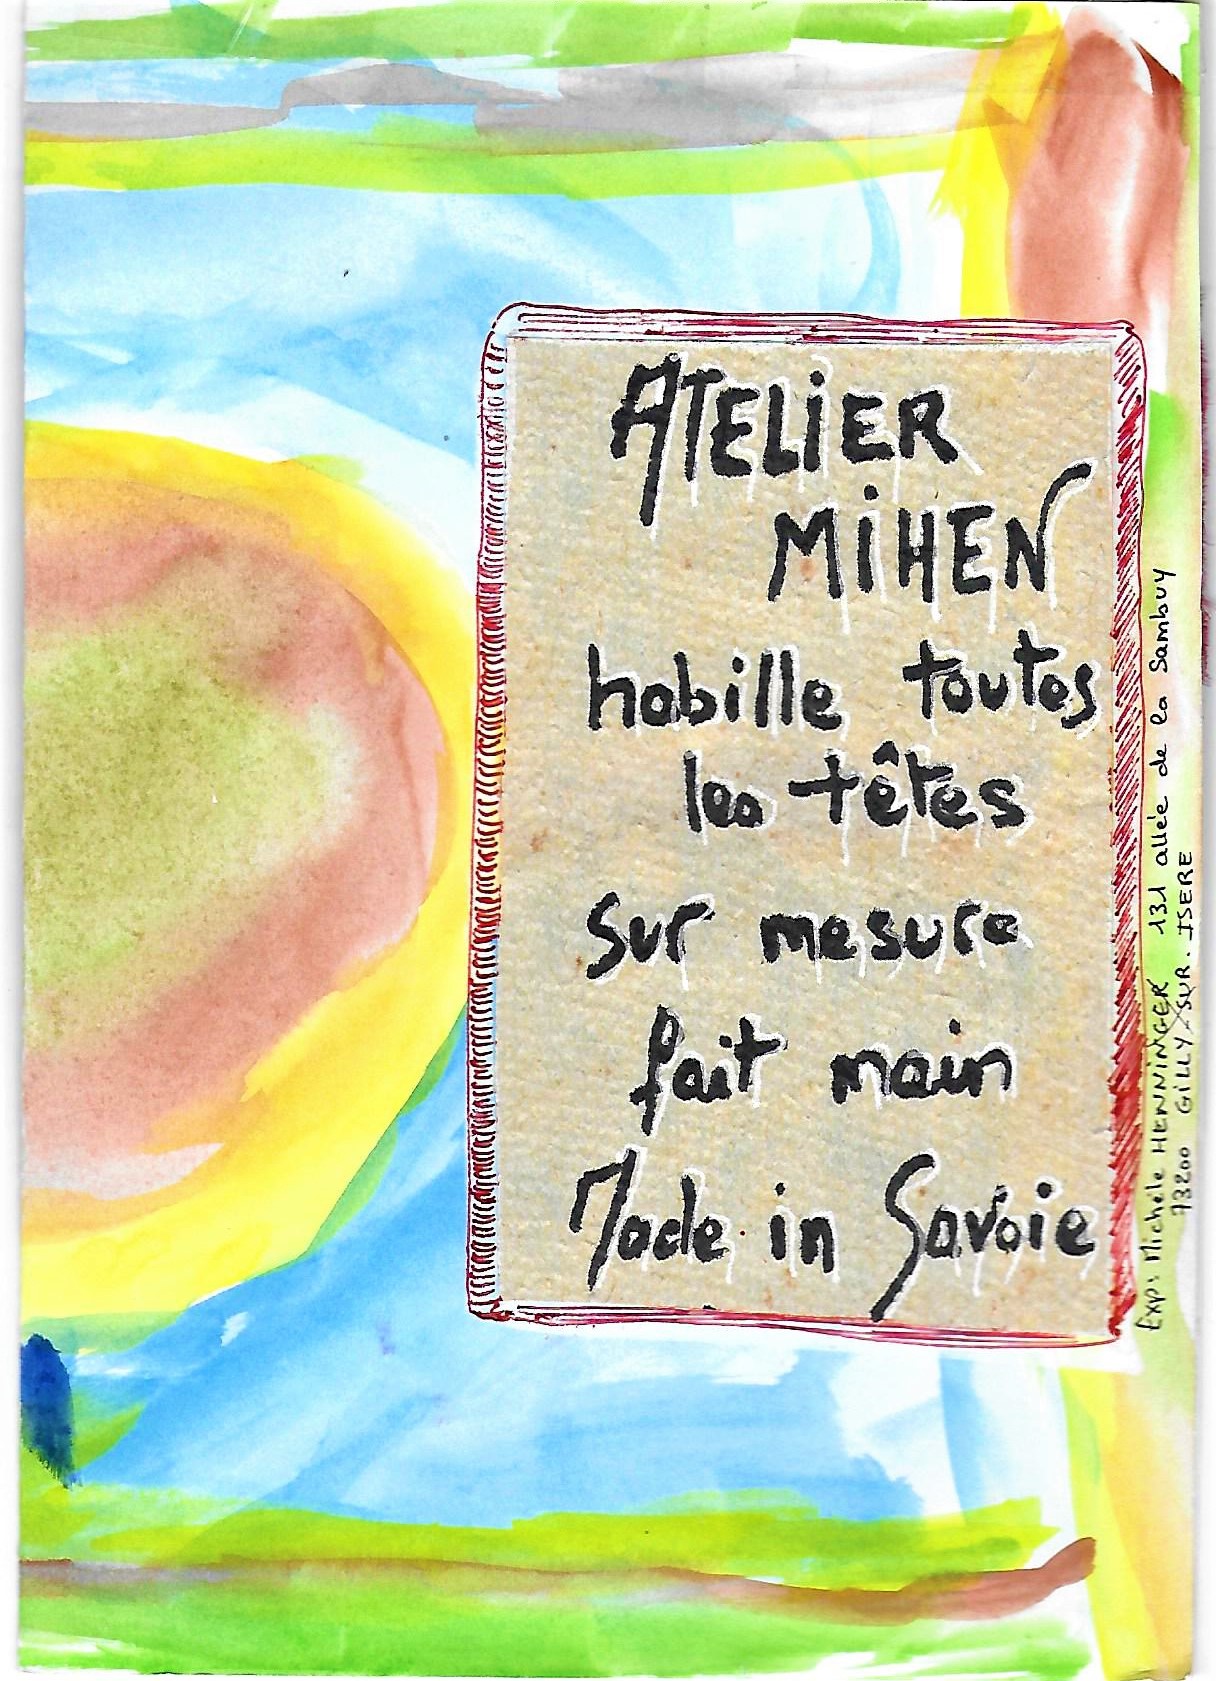 ATELIER
MIHEN
habille toutes
les têtes
sur mesure
fait main
Made in Savoie
Exp: Michèle HENNINGER 131 allée de la Sambuy
73200 GILLY/SUR. ISERE